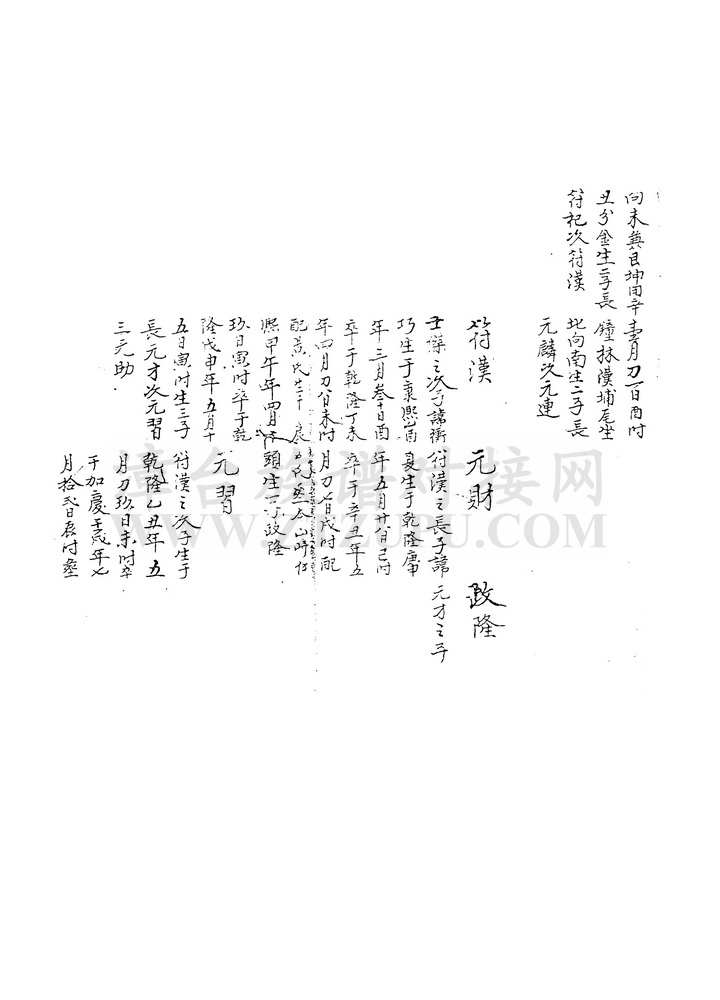 向未兼艮坤用辛
丑分金生二子長
符杞次符漢
月刀一日酉时
鐘林漢埔尾坐
北向南生二子長
元麟次元連
符漢
之次子諱衝
巧生于康熙
年三月叁十日酉
卒于乾隆丁未
年四月刀八日未时
配黄氏
熙甲午年四月
玖日寅时卒于乾
隆戊申年五月十
五日寅时生三子
長元才次元習
三元助
元財
符漢之長子諱
夏生于乾隆庚申
年五月廿八日己时
卒于辛丑年五
月刀七日戌时配
氏葬太山崎仔
頭生一子政隆
元習
符漢之次子生于
乾隆乙丑年五
月刀玖日未时卒
于加慶壬戌年七
月拾弍日辰时葬
政隆
元才之子